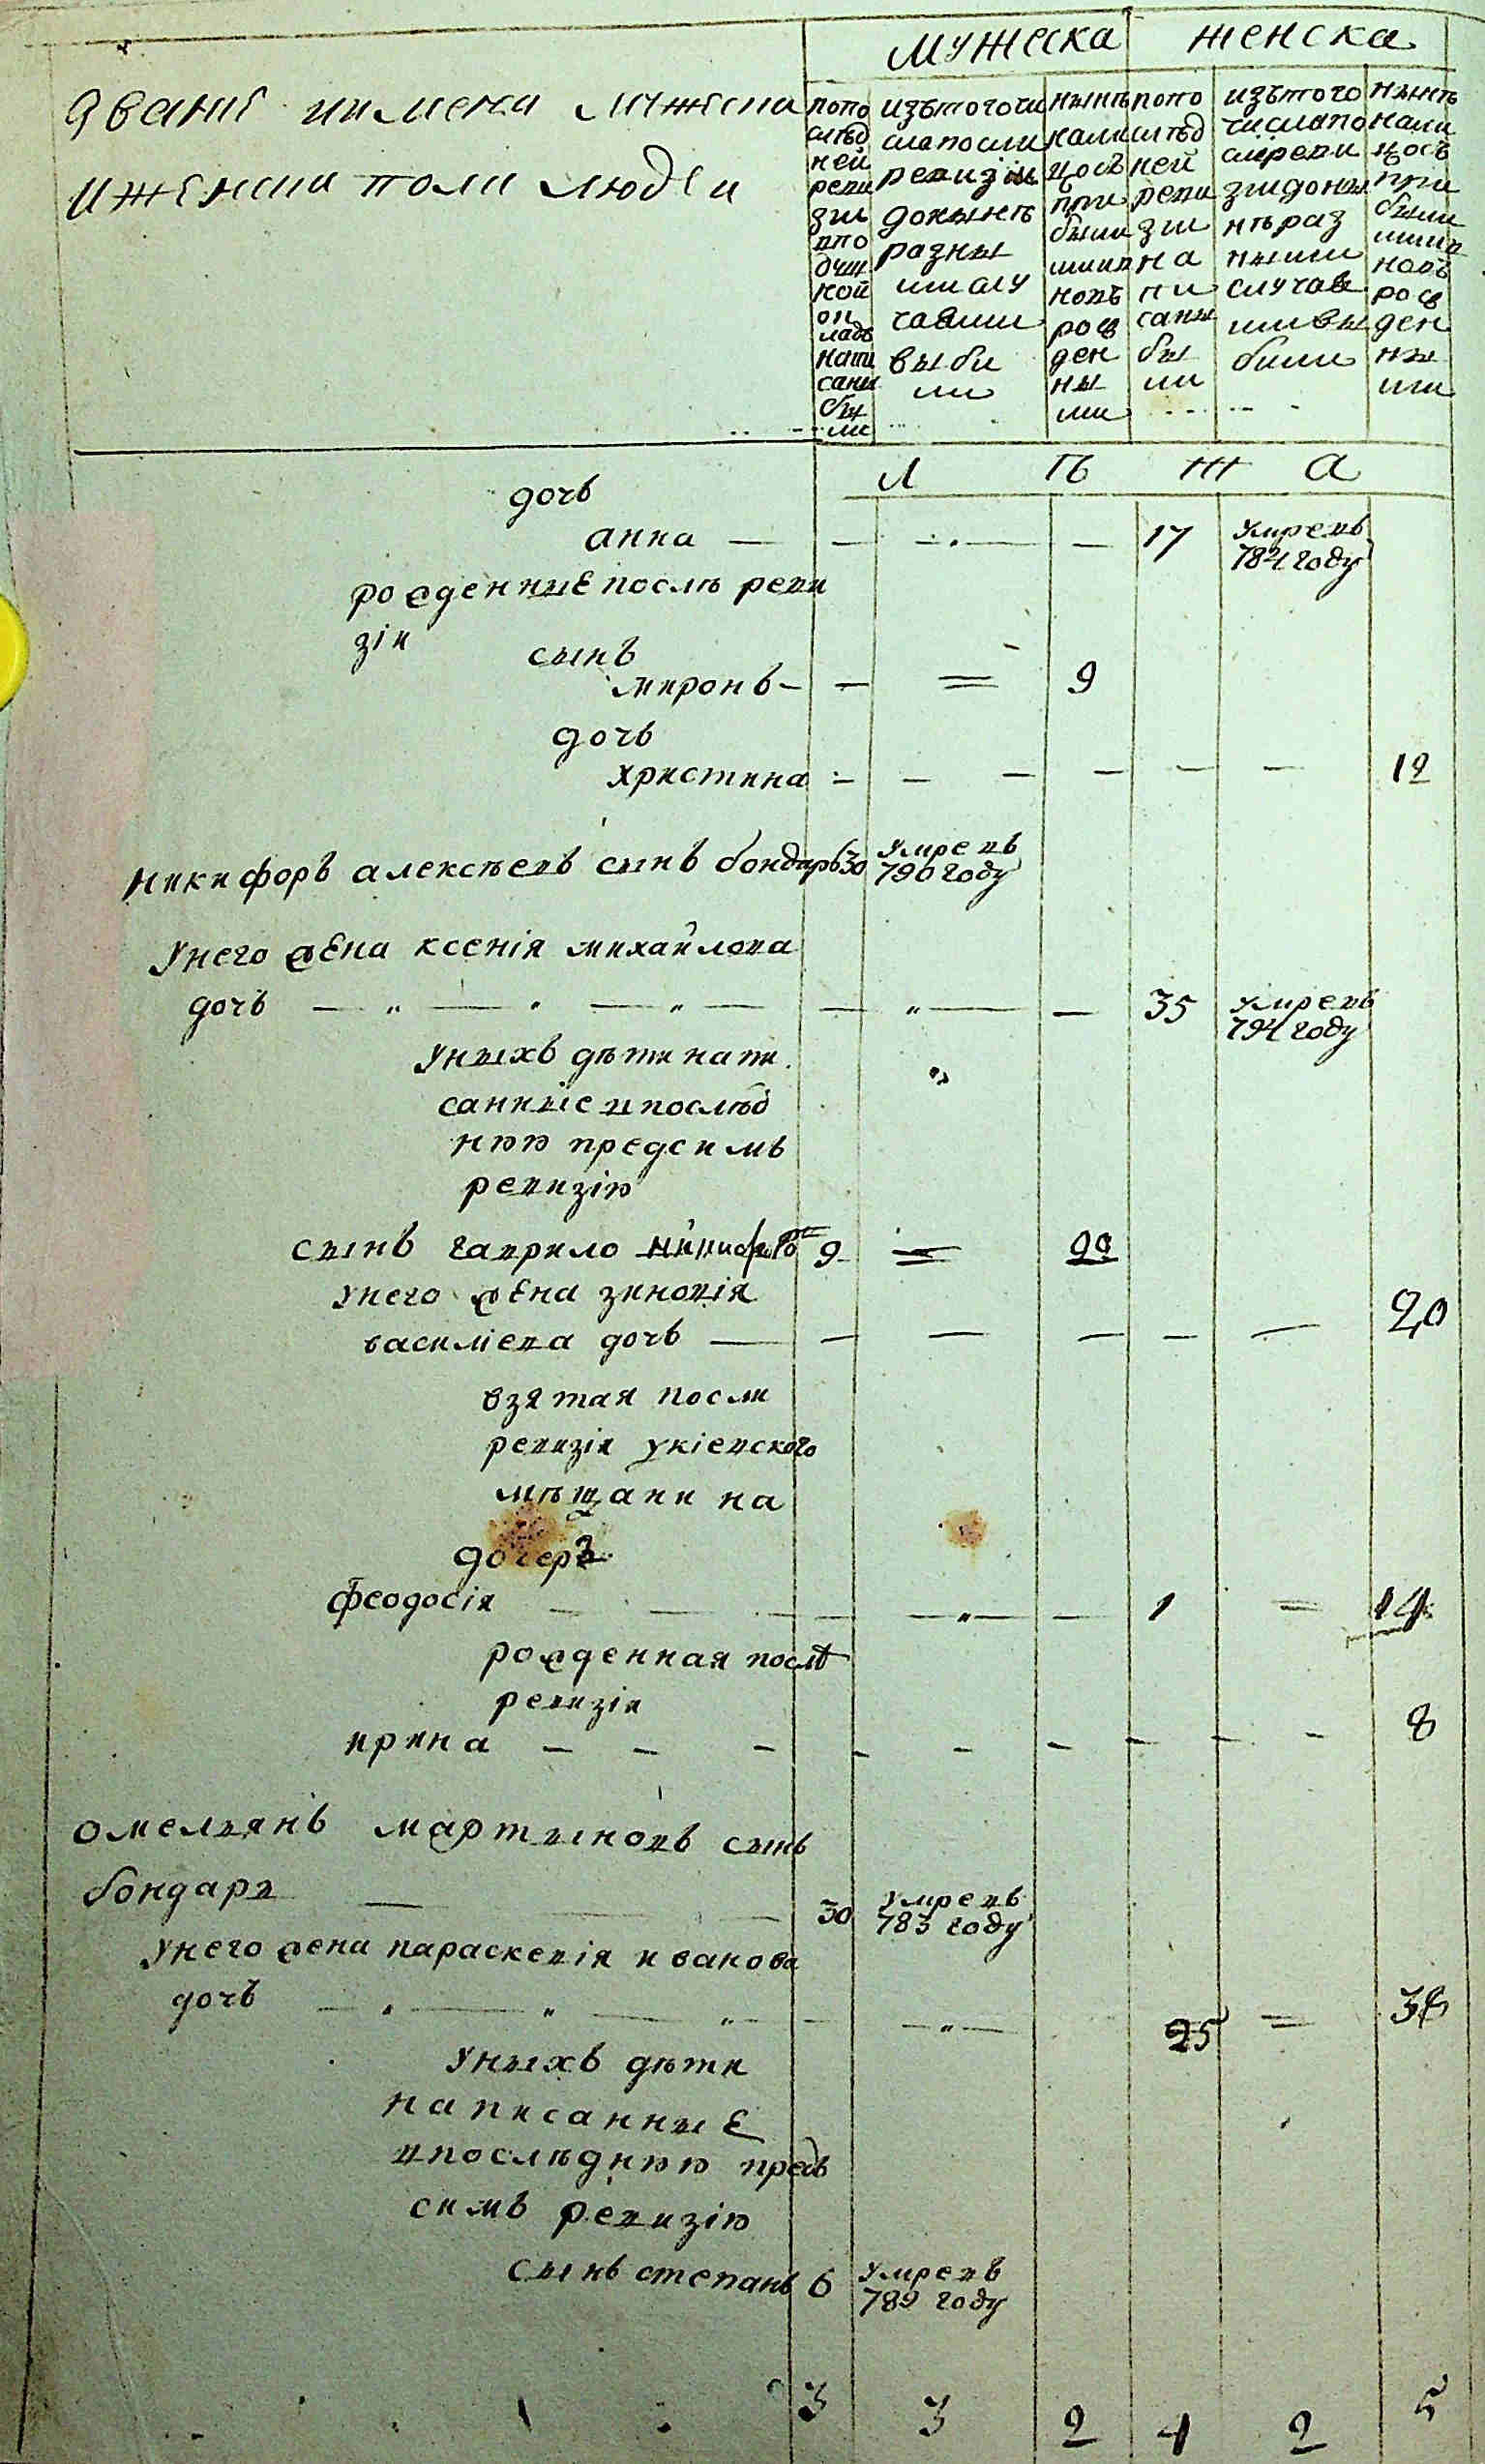 мужеска женска
звание имена мужеска
иженска пола людей
попо
слѣд
ней
реви
зии
впо
душ
ной
ок
ладъ
напи
саны
бы
ли
изътогочи
сла посли
ревизіи
донынѣ
разны
ми слу
чаями
выби
ли
нынѣ
нали
цосъ
при
былы
мии
новъ
рож
ден
ны
ми
попо
слѣд
ней
реви
зии
на
пи
саны
бы
ли
изътого
числапо
слѣреви
зиидоны
нѣраз
ными
случая
мивы
были
нынѣ
нали
цосъ
при
былы
мии
новъ
рож
ден
ны
ми
л ѣ т а
дочь
анна — — — — 17 умрень
784 году
рожденныепослѣ реви
зіи
сынъ
миронъ — — = 9
дочь
христина — — — — — — 12
никифоръ алексѣевъ сынъ бондарь 30 умревъ
790 году
унего жена ксенія михайлова
дочь — — — — — — — 35 умревъ
794 году
уныхъ дѣти напи
санныіе впослѣд
нюю предсимъ
ревизію
сынъ гаврило 9 = 22
унего жена зиновія
василіева дочь — — — — — — 20
взятая посли
ревизіи укіевского
мѣщани на
дочерѣ
феодосія — — — — — — 1 = 14
рожденная послѣ
ревизіи
ирина — — — — — — — — — 8
омелиянъ мартыновъ сынъ
бондарь — — — 30 умревъ
783 году
унего жена параскевія иванова
дочь — — — — — — 25 = 38
уныхъ дѣти
написанные
впослѣднюю предъ
симъ ревизію
сынъ степанъ 6 умревъ
789 году
3 3 2 4 2 5